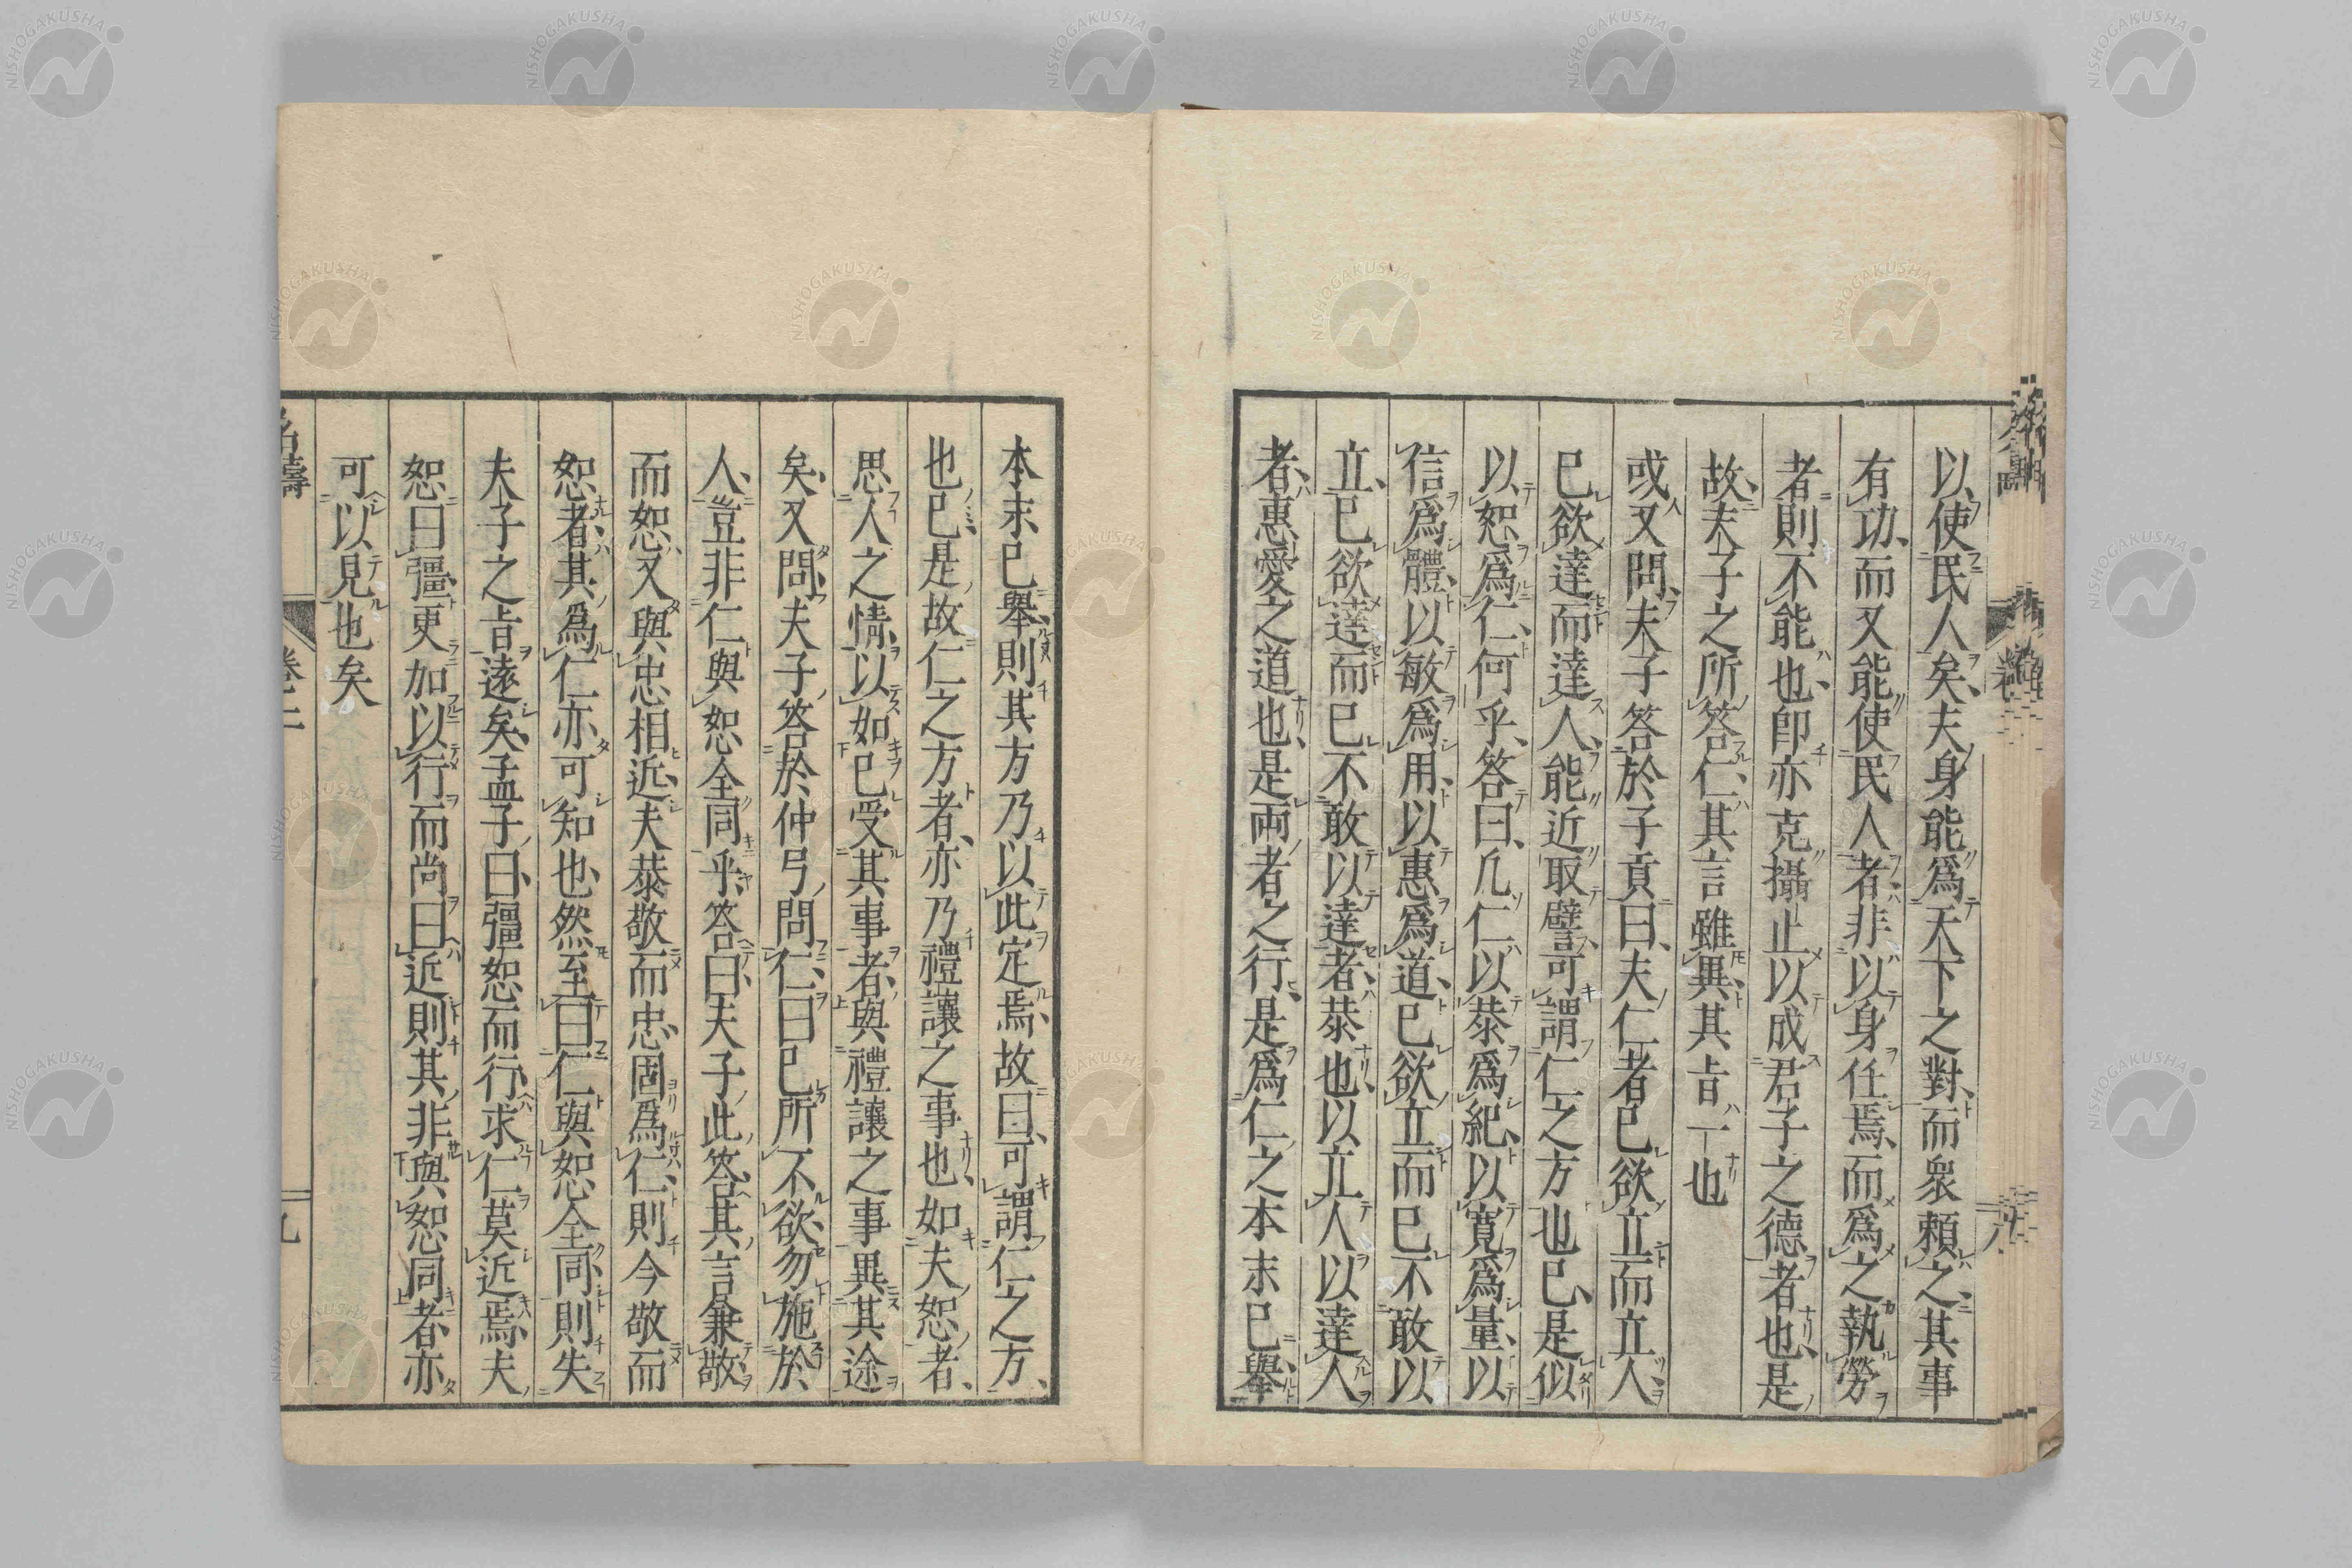 以使民人矣、夫身能爲天下之對、而衆賴之、其事
有功、而又能使民人者、非以身任焉、而爲之執勞
者則不能也、卽亦克攝止以成君子之德者也、是
故夫子之所答仁、其言雖異、其旨一也
或又問、夫子答於子貢曰、夫仁者已欲立而立人、
已欲達而達人、能近取譬、可謂仁之方也已、是似
以恕爲仁、何乎、答曰、凡仁以恭爲紀、以寬爲量、以
信爲體、以敏爲用、以惠爲道、已欲立而已不敢以
立、已欲達而已不敢以達者、恭也、以立人以達人
者、惠愛之道也、是兩者之行、是爲仁之本末已舉、
本末已舉、則其方乃以此定焉、故曰、可謂仁之方、
也已、是故仁之方者、亦乃禮讓之事也、如夫恕者、
思人之情、以如已受其事者、與禮讓之事異其途
矣、又問、夫子答於仲弓問仁、曰已所不欲、勿施於
人、豈非仁與恕全同乎、答曰、夫子此答、其言兼敬
而恕、又與忠相近、夫恭敬而忠、固爲仁、則今敬而
恕者、其爲仁亦可知也、然至曰仁與恕全同、則失
夫子之旨遠矣、孟子曰、彊恕而行、求仁莫近焉、夫
恕曰彊、更加以行、而尚曰近、則其非與恕同者、亦
可以見也矣
名疇
卷二
九